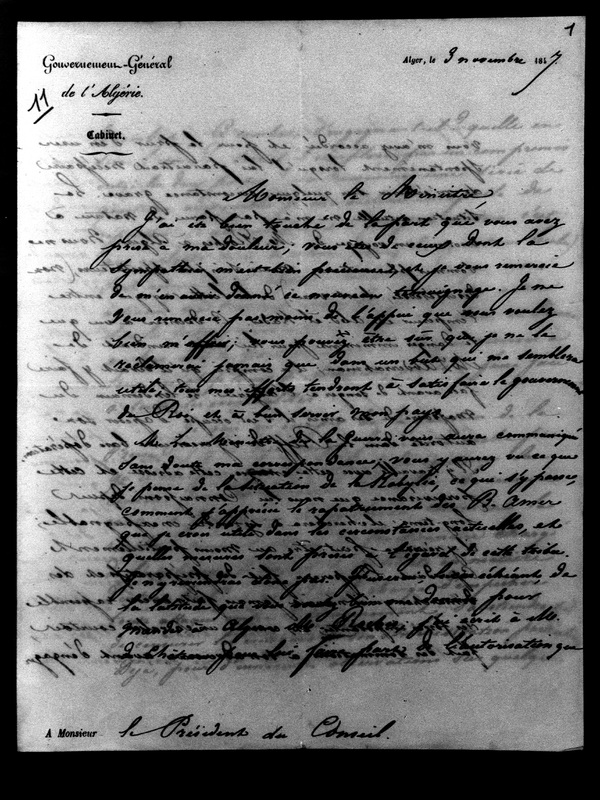 1
Gouvernement-Général
de l'Algérie.
Cabinet.
11
Alger, le 3 novembre 1847.
Monsieur le Ministre
J'ai été bien touché de la part que vous avez
prise à ma douleur; vous êtes de ceux dont la
sympathie m'est bien précieuse et je vous remercie
de m'en avoir donné ce nouveau témoignage. Je ne
vous remercie pas moins de l'appui que vous voulez
bien m'offrir; vous pouvez être sûr que je ne le
réclamerai jamais que dans un but qui me semblera
utile; tous mes efforts tendront à satisfaire le gouvernement
du Roi et à bien servir mon pays.
M. le Ministre de la Guerre vous aura communiqué
sans doute ma correspondance, vous y aurez vu ce que
je pense de la situation de la Kabylie, ce qui s'y passe,
comment j'apprécie le repatriement des B. Amer
que je crois utile dans les circonstances actuelles, et
quelles mesures sont prises à l'égard de cette tribu.
de
la latitude que vous pour
Alger j'ai écrit à M.
de pour lui faire part de l'autorisation que
A Monsieur le Président du Conseil.